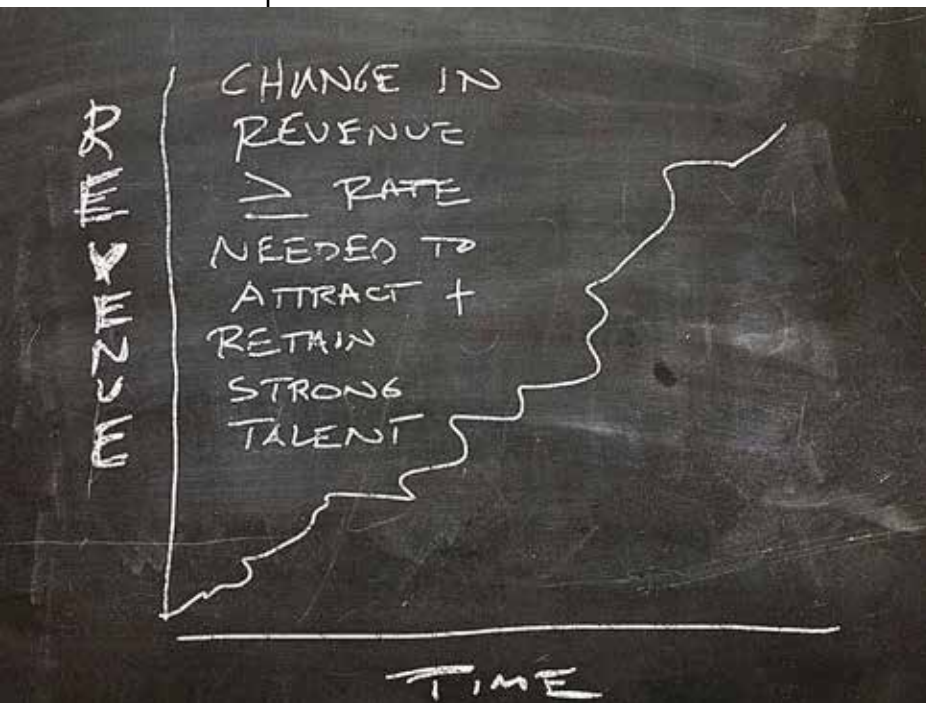 REVENUE
CHANGE IN
REVENUE
≥ RATE
NEEDED TO
ATTRACT +
RETAIN
STRONG
TALENT
TIME